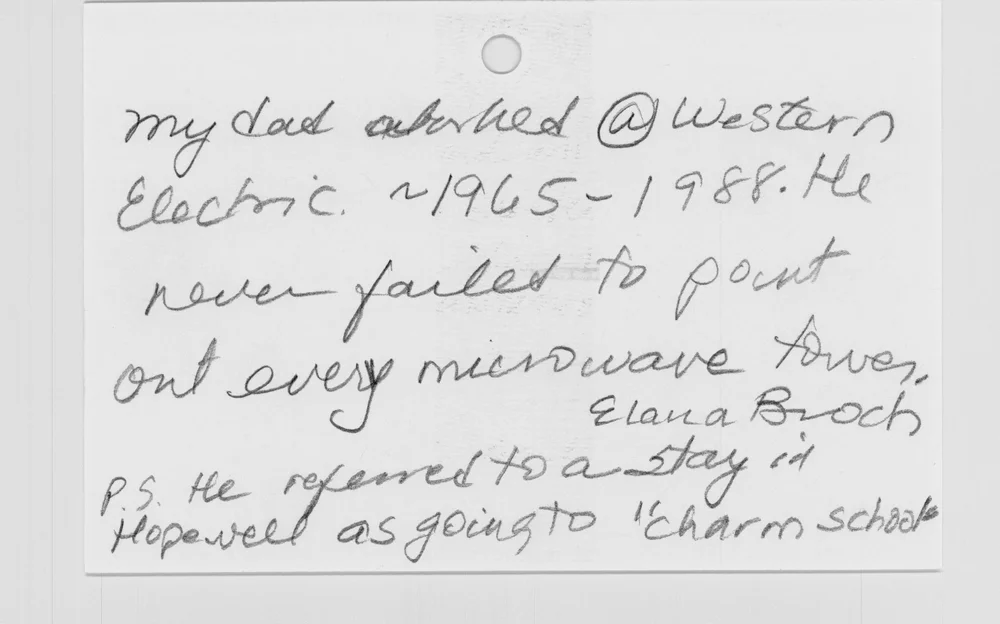 my dad worked @ Western
Electric. ~1965-1988. He
never failed to point
out every microwave tower.
Elana Broch
P.S. He referred to a stay in
Hopewell as going to "charm school"